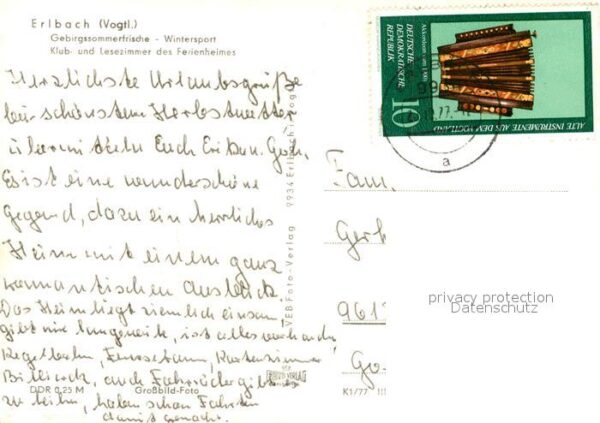 Erlbach (Vogtl.)
Gebirgssommerfrische - Wintersport
Klub- und Lesezimmer des Ferienheimes
Herzlichste Urlaubsgrüße
bei schönstem Herbstwetter
übermitteln Euch Erika u. Gerh.
Es ist eine wunderschöne
Gegend, dazu ein herrliches
Heim mit einem ganz
romantischen Ausblick.
Das Heim liegt ziemlich einsam,
gibt nie Langeweile, ist alles vorhanden
Kegelbahn, Fernsehraum, Kartenzimmer
Billiard, auch Fahrräder gibt es
zu leihn, haben schon Fahrten
damit gemacht.
DDR 0,25 M
Großbild-Foto
VEB Foto-Verlag 9934 Erlbach i. Vogtl.
FOTO VERLAG
K1/77
DEUTSCHE
DEMOKRATISCHE
REPUBLIK
Akkordeon um 1900
10
ALTE INSTRUMENTE AUS DEM VOGTLAND
77
a
Fam.
Gerh
961
Go
privacy protection
Datenschutz